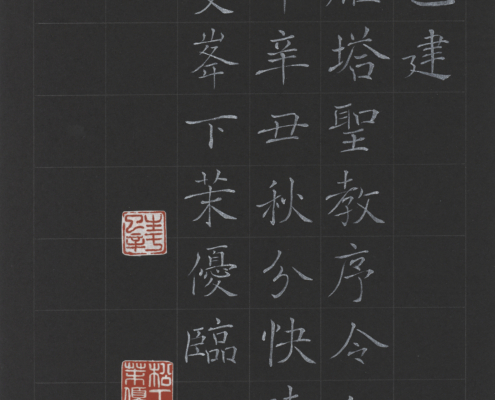 建
塔聖教序令
辛丑秋分快
峯下茉優臨